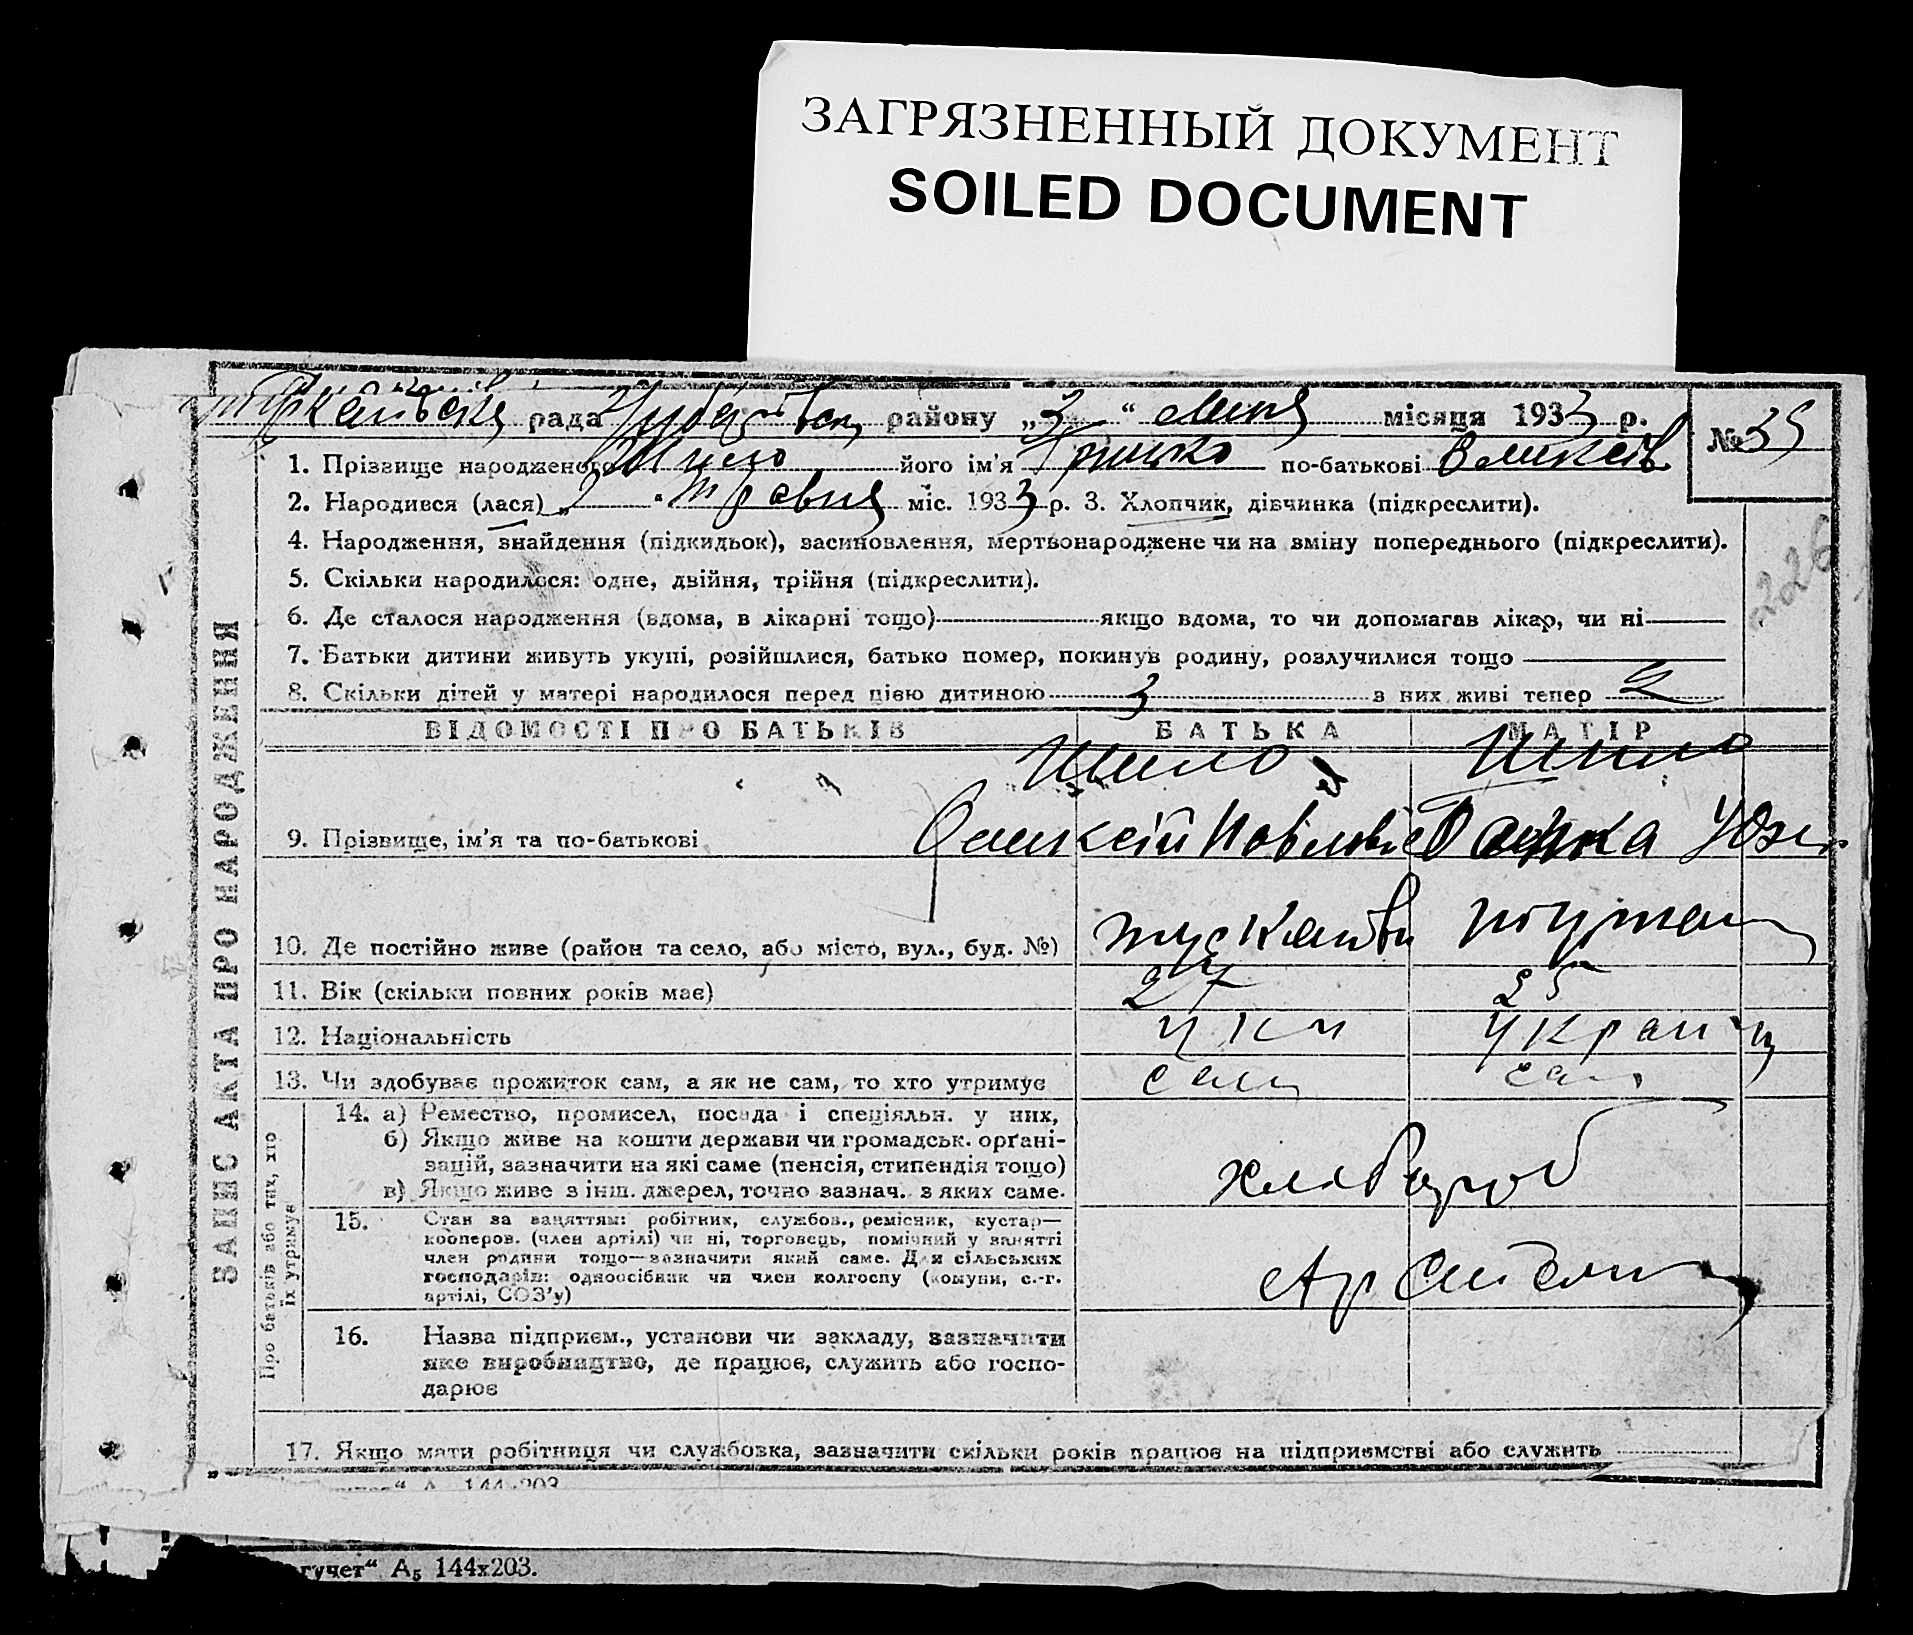 ЗАГРЯЗНЕННЫЙ ДОКУМЕНТ
SOILED DOCUMENT
рада району „3“ місяця 1933 р.
№ 35
1. Прізвище народженого Шило його ім'я Грицько по-батькові Олексіїв
2. Народився (лася) „2“ травня міс. 1933 р. 3. Хлопчик, дівчинка (підкреслити).
4. Народження, знайдення (підкидьок), засиновлення, мертвонароджене чи на зміну попереднього (підкреслити).
5. Скільки народилося: одне, двійня, трійня (підкреслити).
226
6. Де сталося народження (вдома, в лікарні тощо) якщо вдома, то чи допомагав лікар, чи ні
7. Батьки дитини живуть укупі, розійшлися, батько помер, покинув родину, розлучилися тощо
8. Скільки дітей у матері народилося перед цією дитиною 3 з них живі тепер 2
ЗАПИС АКТА ПРО НАРОДЖЕННЯ
ВІДОМОСТІ ПРО БАТЬКІВ БАТЬКА МАТІР
Шило Шило
9. Прізвище, ім'я та по-батькові Олексій
10. Де постійно живе (район та село, або місто, вул., буд. №)
11. Вік (скільки повних років має) 27 25
12. Національність укр україн
13. Чи здобуває прожиток сам, а як не сам, то хто утримує сам сам
Про батьків або тих, хто їх утримує
14. а) Ремество, промисел, посада і спеціяльн. у них,
б) Якщо живе на кошти держави чи громадськ. орґані-
зацій, зазначити на які саме (пенсія, стипендія тощо)
в) Якщо живе з інш. джерел, точно зазнач. з яких саме.
хлібороб
15. Стан за заняттям: робітник, службов., ремісник, кустар—
кооперов. (член артілі) чи ні, торговець, помічний у занятті
член родини тощо—зазначити який саме. Для сільських
господарів: одноосібник чи член колгоспу (комуни, с.-г.
артілі, СОЗ'у)
16. Назва підприєм., установи чи закладу, зазначити
яке виробництво, де працює, служить або госпо-
дарює
17. Якщо мати робітниця чи службовка, зазначити скільки років працює на підприємстві або служить
144х203
гучет“ А₅ 144х203.